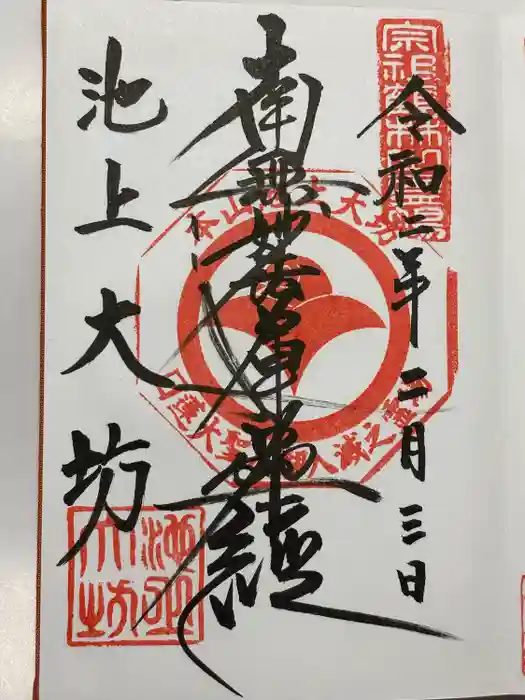 令和二年 二月三日
南無妙法蓮華経
池上大坊
本山池上大坊
日蓮大聖人入滅之霊場
池上大坊